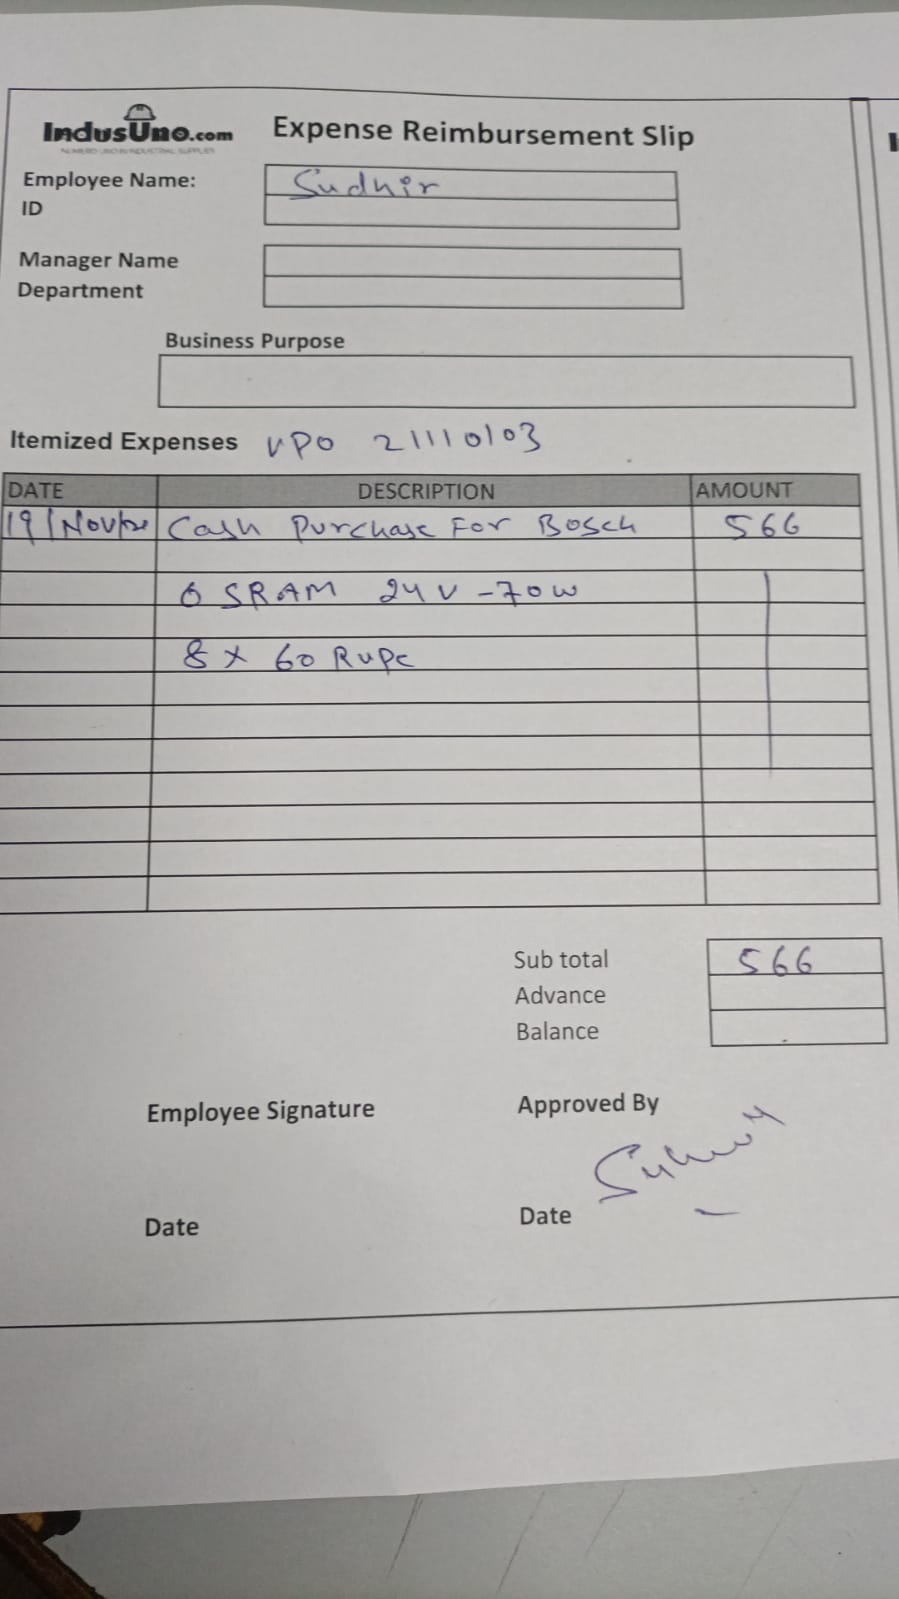 IndusUno.com
NUMERO UNO IN INDUSTRIAL SUPPLIES
Expense Reimbursement Slip
Employee Name: Sudhir
ID
Manager Name
Department
Business Purpose
Itemized Expenses VPO 21110103
DATE DESCRIPTION AMOUNT
19/Nov/ Cash Purchase For Bosch 566
OSRAM 24V-70W
8 x 60 Rupe
Sub total 566
Advance
Balance
Employee Signature
Approved By
Date
Date